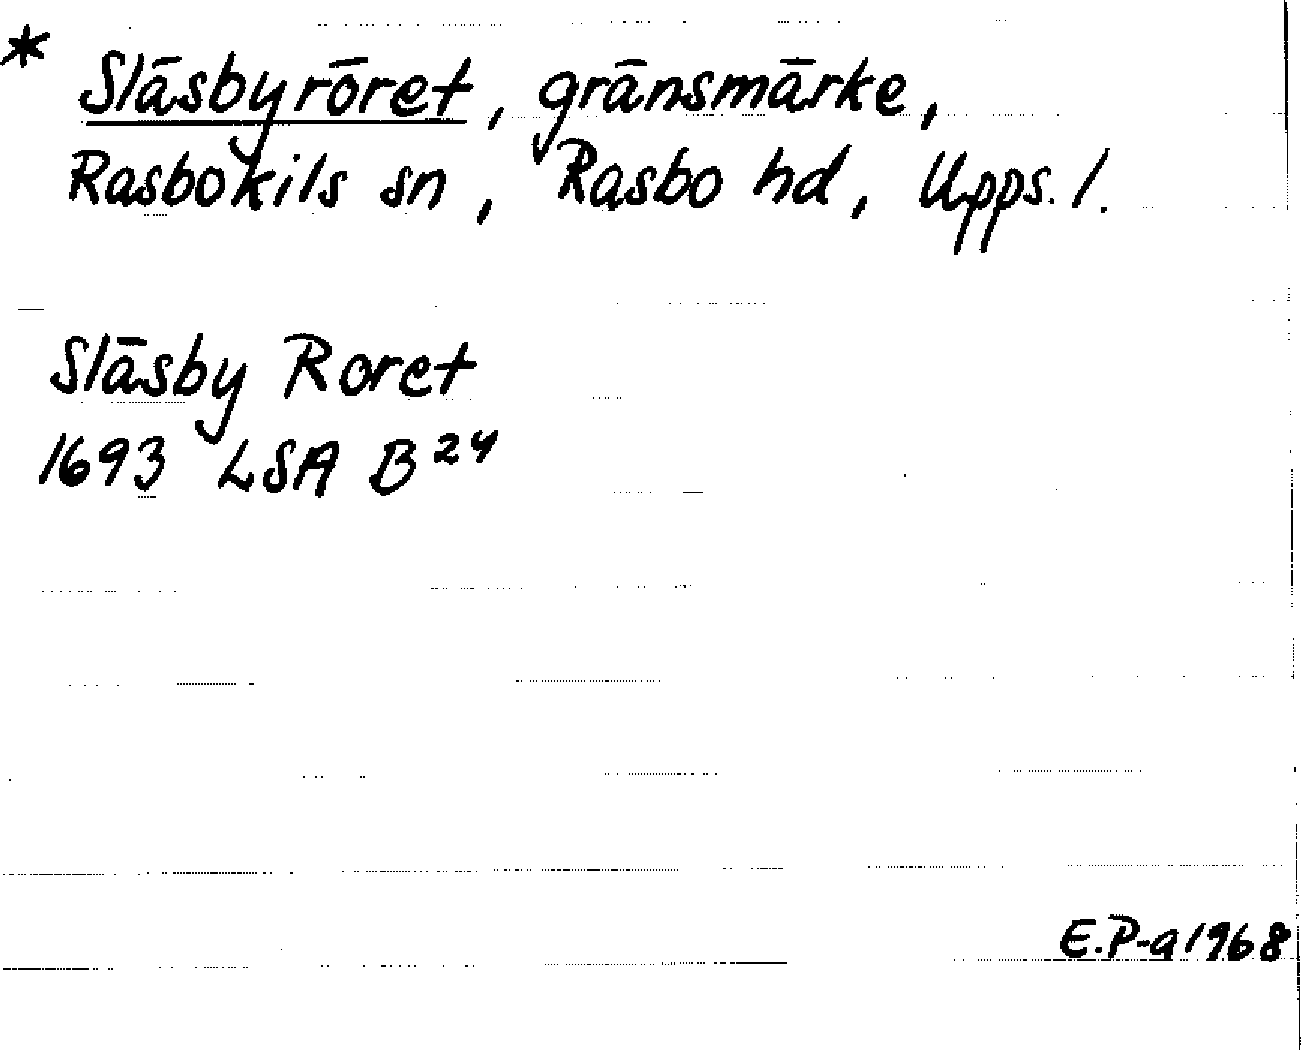 * Släsbyröret, gränsmärke,
Rasbokils sn, Rasbo hd, Upps. l.
Släsby Roret
1693 LSA B 24
E.P-a 1968